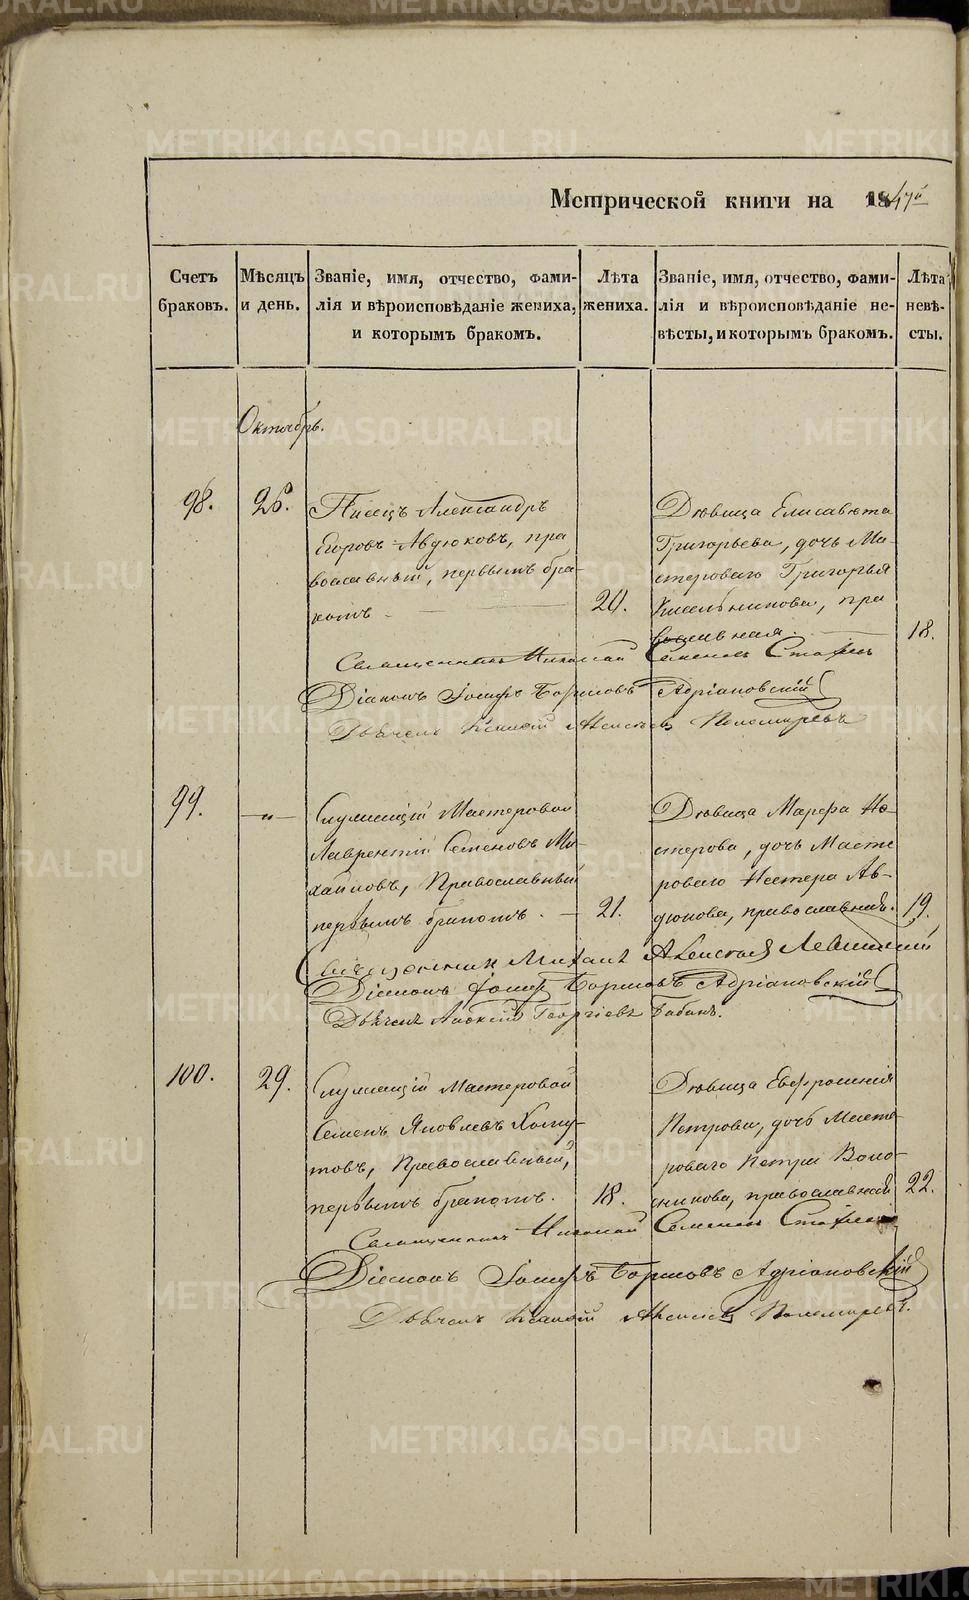 METRIKI.GASO-URAL.RU
Метрической книги на 1847й
Счетъ браковъ.
Мѣсяцъ и день.
Званіе, имя, отчество, фами-
лія и вѣроисповѣданіе жениха,
и которымъ бракомъ.
Лѣта жениха.
Званіе, имя, отчество, фами-
лія и вѣроисповѣданіе не-
вѣсты, и которымъ бракомъ.
Лѣта невѣ-
сты.
Октябрь.
98.
26.
Писецъ Александръ
Егоровъ Авдюковъ, пра
вославный, первымъ бра-
комъ
20.
Дѣвица Елисавета
Григорьева, дочь Ма-
стероваго Григорья
Кисельникова, пра
вославная.
18.
Священникъ Николай Семеновъ
Діаконъ Іосифъ Борисовъ Адріановскій
Дьячекъ Алексѣевъ
99.
—„—
Служащій Мастеровой
Лаврентій Семеновъ Ми
хайловъ, Православный
первымъ бракомъ.
21.
Дѣвица Марфа Не-
стерова, дочь Масте
роваго Нестера Ав-
дюкова, православная.
19.
Священникъ Михаилъ Алексѣевъ Левицкій
Діаконъ Іосифъ Борисовъ Адріановскій
Дьячекъ Алексѣй Георгіевъ Бабинъ.
100.
29.
Служащій Мастеровой
Семенъ Яковлевъ Хому-
товъ, Православный,
первымъ бракомъ.
18.
Дѣвица Евфросинія
Петрова, дочь Масте-
роваго Петра Воло-
сникова, православная
22.
Священникъ Николай Семеновъ
Діаконъ Іосифъ Борисовъ Адріановскій
Дьячекъ Алексѣевъ